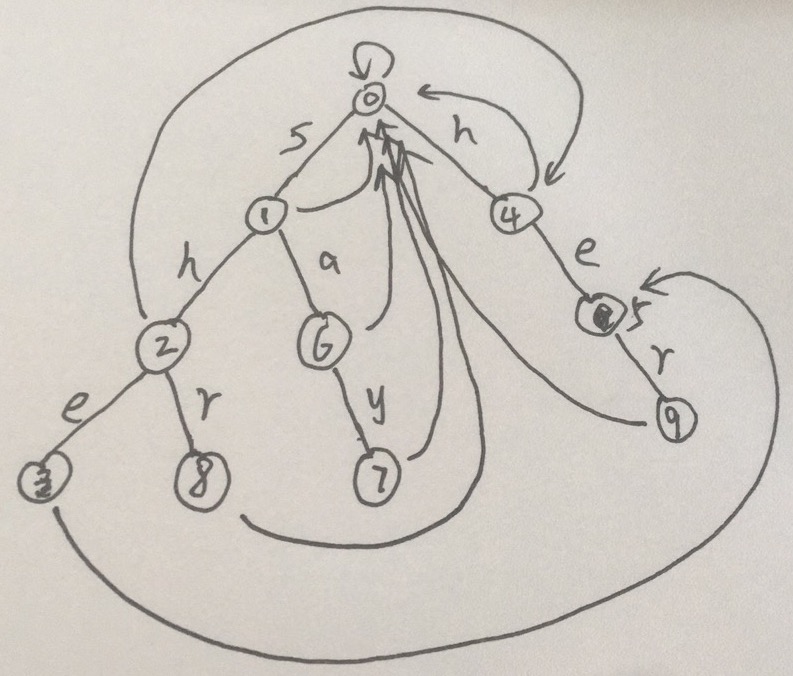 0
s h
1 4
h a e
2 6 5
e r y r
3 8 7 9